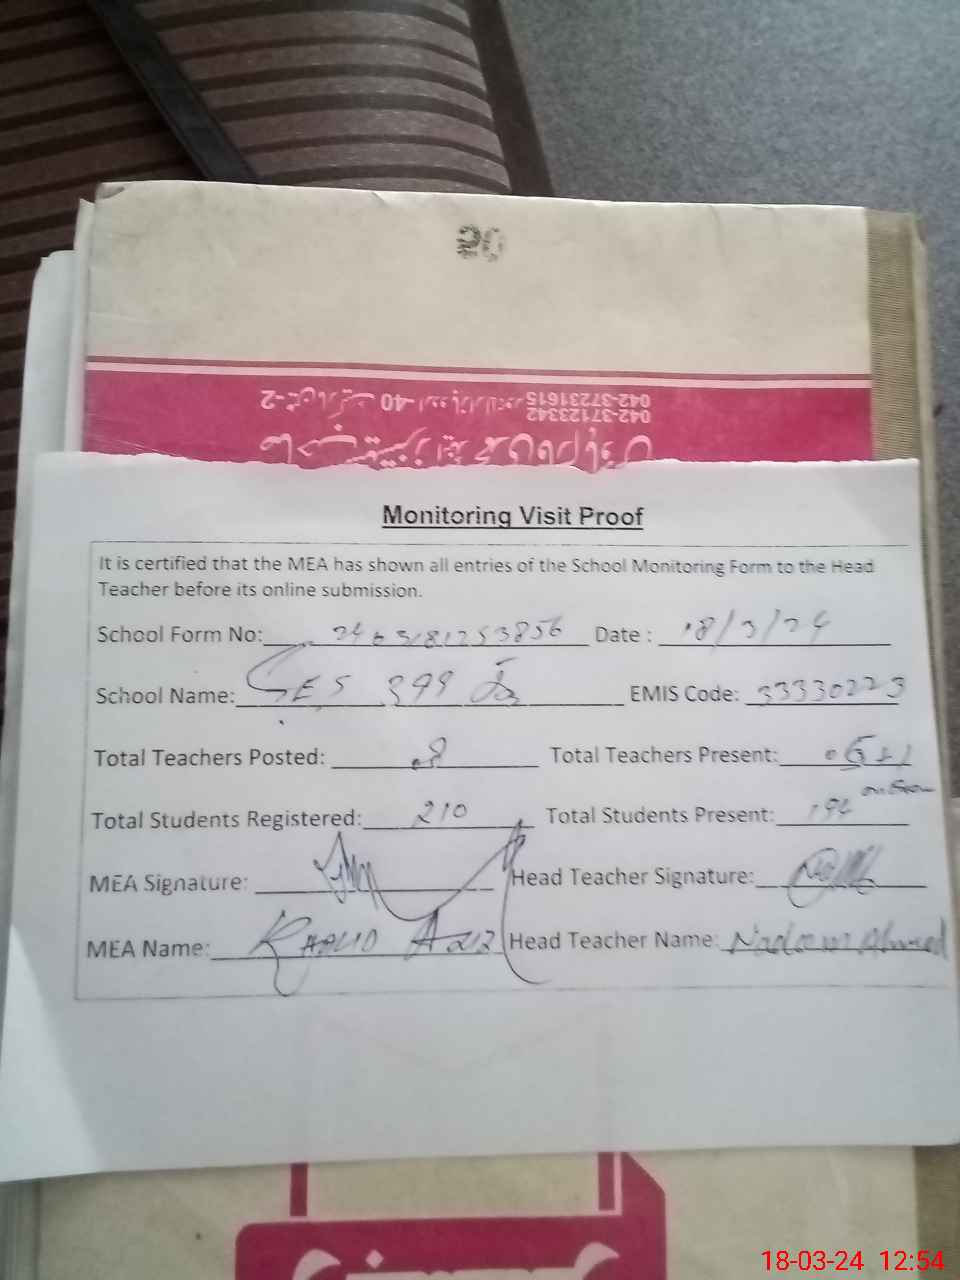 20
042-37231615
042-37123342
Monitoring Visit Proof
It is certified that the MEA has shown all entries of the School Monitoring Form to the Head
Teacher before its online submission.
School Form No: Date : 18/3/24
School Name: GES 399 JB EMIS Code: 33330223
Total Teachers Posted: 8 Total Teachers Present:
Total Students Registered: 210 Total Students Present: 194
MEA Signature: Head Teacher Signature:
MEA Name: KHALID AZIZ Head Teacher Name: Nadeem Ahmed
18-03-24 12:54